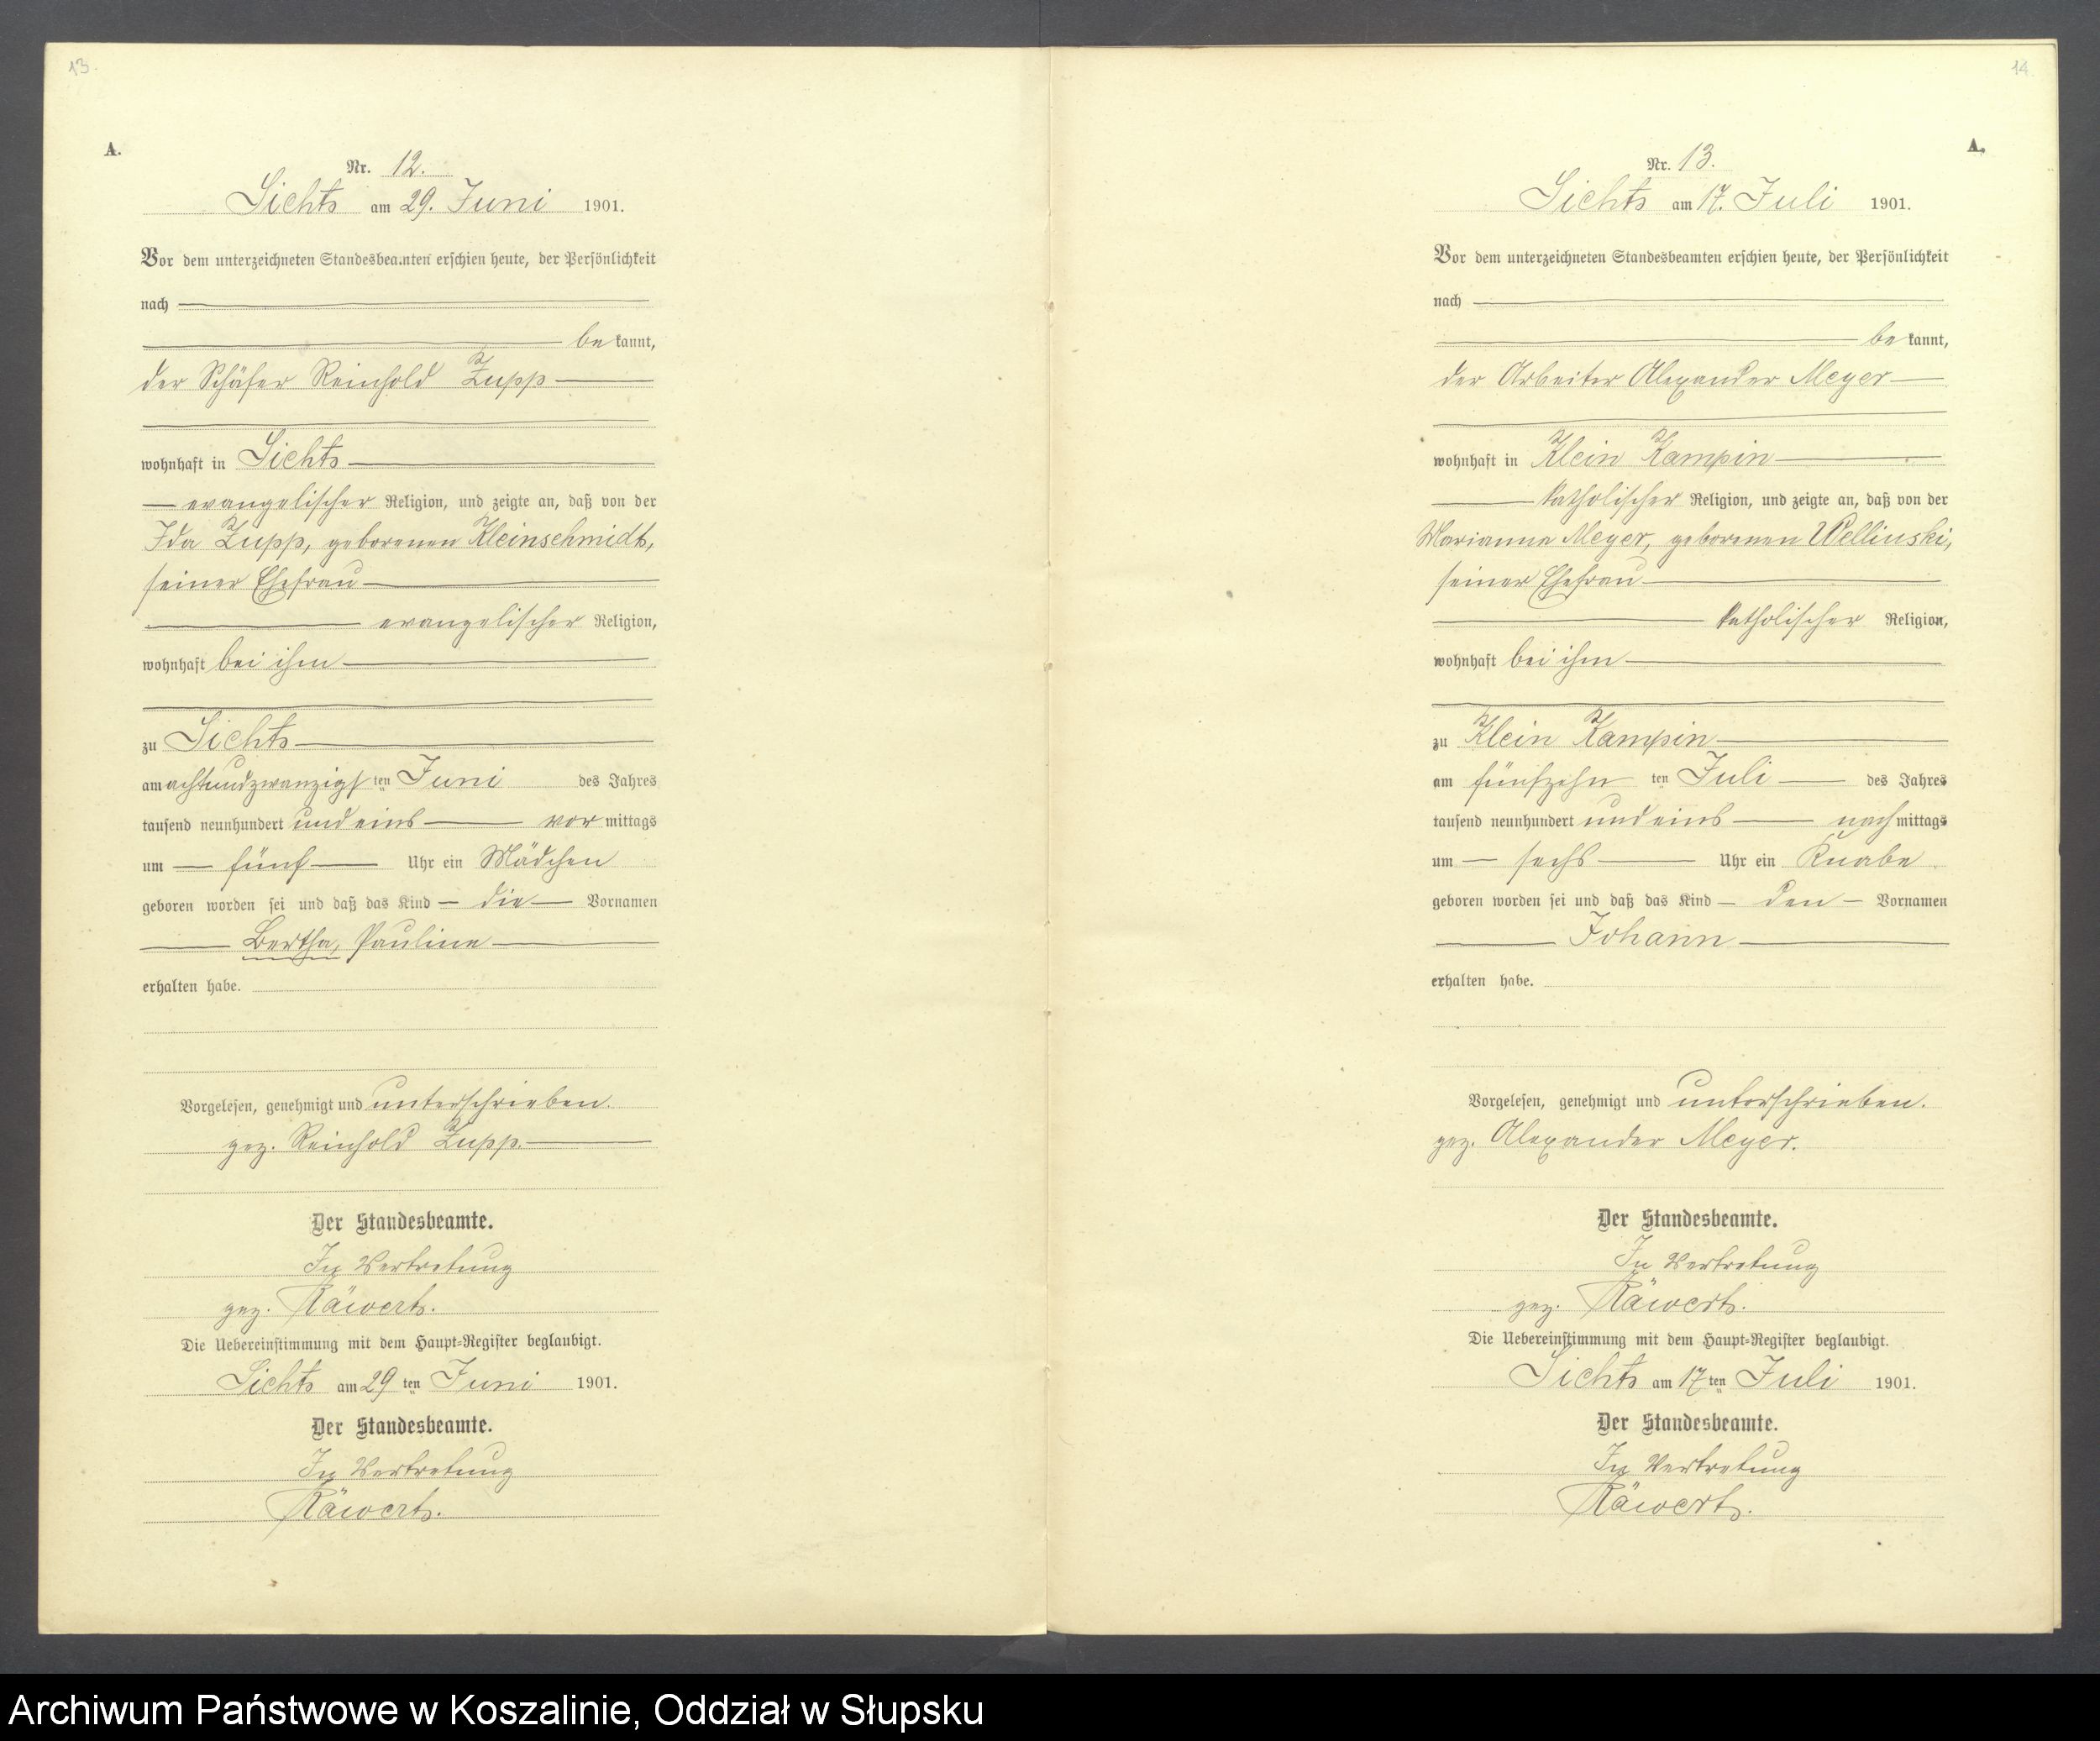 13.
A.
Nr. 12.
Sichts am 29. Juni 1901.
Vor dem unterzeichneten Standesbeamten erschien heute, der Persönlichkeit
nach
be kannt,
der Schäfer Reinhold Zupp
wohnhaft in Sichts
evangelischer Religion, und zeigte an, daß von der
Ida Zupp, geborenen Kleinschmidt,
seiner Ehefrau
evangelischer Religion,
wohnhaft bei ihm
zu Sichts
am achtundzwanzigsten Juni des Jahres
tausend neunhundert und eins vor mittags
um fünf Uhr ein Mädchen
geboren worden sei und daß das Kind die Vornamen
Bertha, Pauline
erhalten habe.
Vorgelesen, genehmigt und unterschrieben.
gez. Reinhold Zupp.
Der Standesbeamte.
In Vertretung
gez. Räwert.
Die Uebereinstimmung mit dem Haupt-Register beglaubigt.
Sichts am 29 ten Juni 1901.
Der Standesbeamte.
In Vertretung
Räwert.
14.
A.
Nr. 13.
Sichts am 17. Juli 1901.
Vor dem unterzeichneten Standesbeamten erschien heute, der Persönlichkeit
nach
be kannt,
der Arbeiter Alexander Meyer
wohnhaft in Klein Kampin
katholischer Religion, und zeigte an, daß von der
Marianna Meyer, geborenen Wellinski,
seiner Ehefrau
katholischer Religion,
wohnhaft bei ihm
zu Klein Kampin
am fünfzehn ten Juli des Jahres
tausend neunhundert und eins nach mittags
um sechs Uhr ein Knabe
geboren worden sei und daß das Kind den Vornamen
Johann
erhalten habe.
Vorgelesen, genehmigt und unterschrieben.
gez. Alexander Meyer.
Der Standesbeamte.
In Vertretung
gez. Räwert.
Die Uebereinstimmung mit dem Haupt-Register beglaubigt.
Sichts am 17 ten Juli 1901.
Der Standesbeamte.
In Vertretung
Räwert.
Archiwum Państwowe w Koszalinie, Oddział w Słupsku